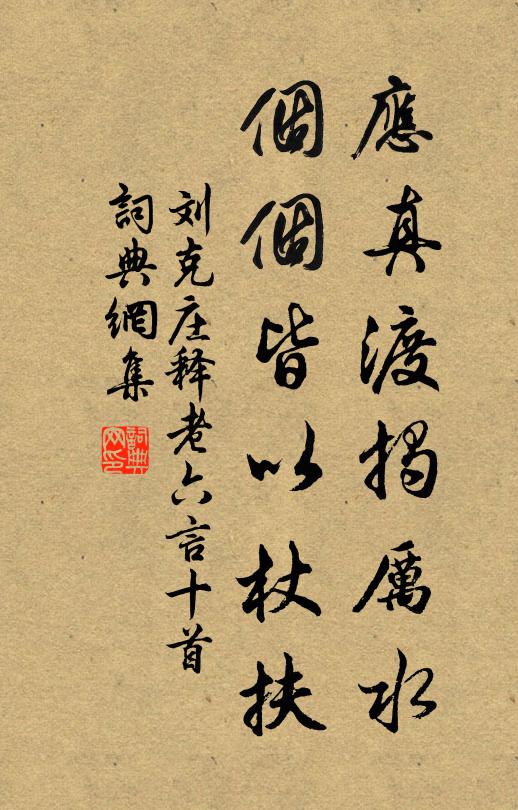 應真渡揭厲水
個個皆以杖扶
刘克庄释老六言十首
詞典網集
詞典网印